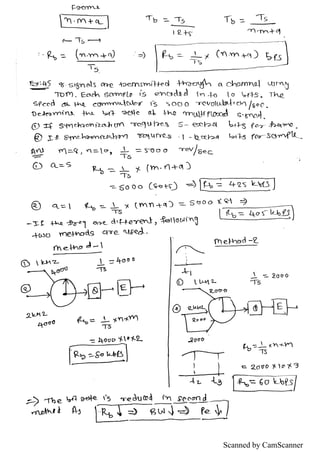 Frame
n.m+a
Tb = Ts / n.m+a
← Ts →
∴ Rb = (n.m+a) / Ts ⇒ Rb = 1/Ts × (n.m+a) bps
8 signals are transmitted through a channel using
TDM. Each sample is encoded in to 10 bits. The
speed of the commutator is 5000 revolution/sec.
Determine the bit rate of the multiplexed signal.
① If synchronization requires 5-extra bits for frame.
② If synchronization requires 1-extra bits for sample.
Ans m=8, n=10, 1/Ts = 5000 rev/sec
① a=5 Rb = 1/Ts × (m.n+a)
= 5000 (80+5) ⇒ Rb = 425 kbps
② a=1 Rb = 1/Ts × (mn+a) = 5000 × 81 ⇒
Rb = 405 kbps
- If the freq are different, following
two methods are used.
method-1
method-2
① 1kHz 1/Ts = 4000
4000
② Q E
2kHz
4000
Rb = 1/Ts × n×m
= 4000×10×2
Rb = 80 kbps
t1
1/Ts = 2000
① 1kHz
2000
② 2kHz Q E
2000
2000
t2 t3
Rb = 1/Ts × n×m
= 2000×10×3
Rb = 60 kbps
⇒ The bit rate is reduced in second
method As Rb ↓ ⇒ BW ↓ ⇒ Pe ↓
Scanned by CamScanner